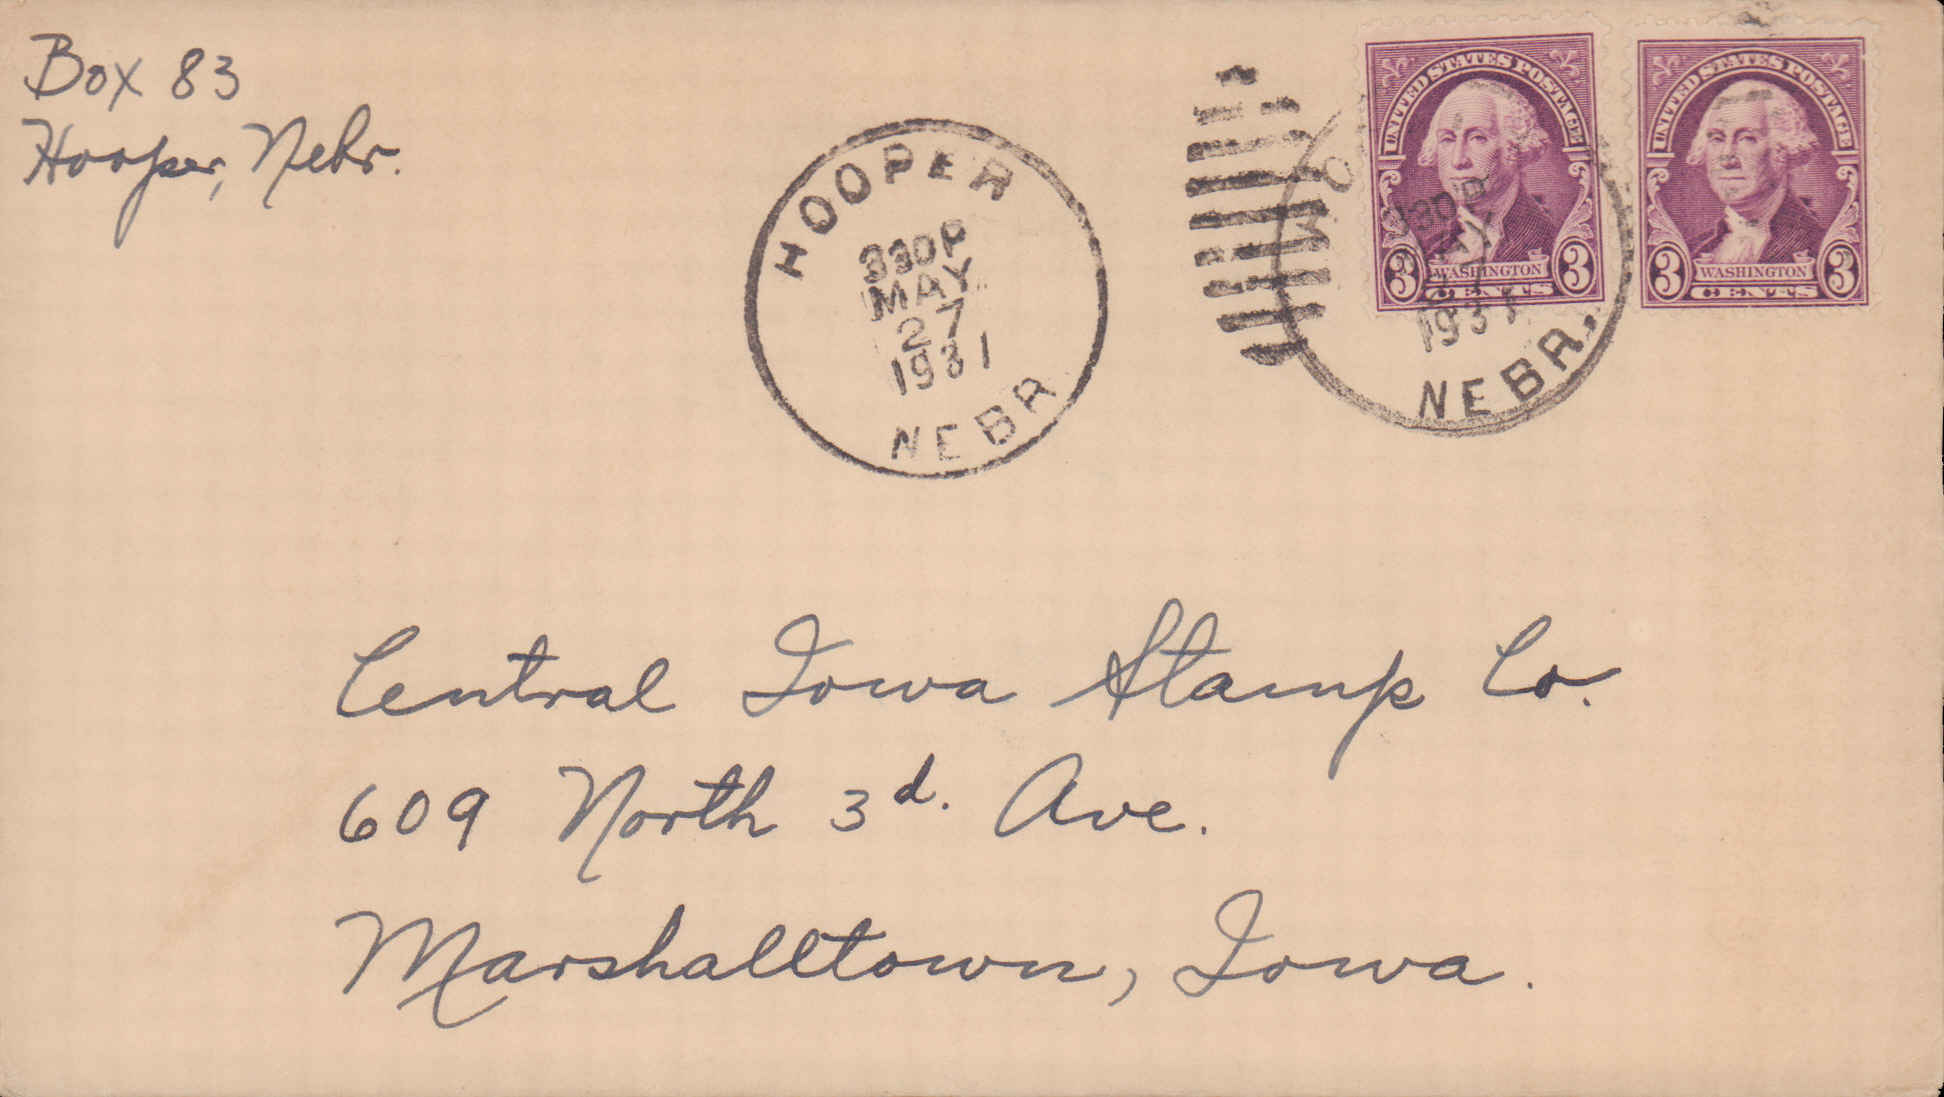 Box 83
Hooper, Nebr.
HOOPER
330P
MAY
27
1931
NEBR
UNITED STATES POSTAGE
3 WASHINGTON 3
CENTS
UNITED STATES POSTAGE
3 WASHINGTON 3
CENTS
330P
1931
NEBR.
Central Iowa Stamp Co.
609 North 3d. Ave.
Marshalltown, Iowa.